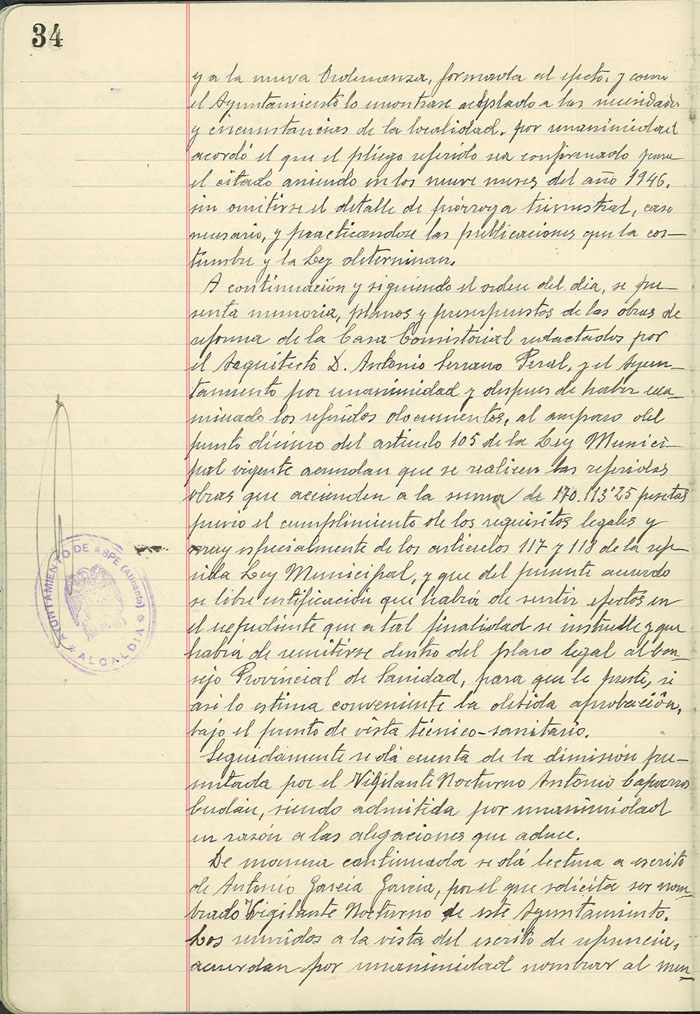 34
y a la nueva Ordenanza, formada al efecto; y como
el Ayuntamiento lo encontrase adaptado a las necesidades
y circunstancias de la localidad, por unanimidad
acordó el que el pliego referido sea confirmado para
el citado arriendo en los nueve meses del año 1946,
sin omitirse el detalle de prórroga trimestral, caso
necesario, y practicandose las publicaciones que la cos-
tumbre y la Ley determinan.
A continuación y siguiendo el orden del dia, se pre-
senta memoria, planos y presupuestos de las obras de
reforma de la Casa Consistorial redactados por
el Arquitecto D. Antonio Serrano Peral, y el Ayun-
tamiento por unanimidad y despues de haber exa-
minado los referidos documentos, al amparo del
punto décimo del articulo 105 de la Ley Munici-
pal vigente acuerdan que se realicen las referidas
obras que ascienden a la suma de 170.113'25 pesetas
previo el cumplimiento de los requisitos legales y
muy especialmente de los articulos 117 y 118 de la refe-
rida Ley Municipal, y que del presente acuerdo
se libre certificación que habrá de surtir efectos en
el expediente que a tal finalidad se instruye y que
habra de remitirse dentro del plazo legal al Con-
sejo Provincial de Sanidad, para que le preste, si
asi lo estima conveniente la debida aprobación,
bajo el punto de vista técnico-sanitario.
Seguidamente se dá cuenta de la dimisión pre-
sentada por el Vigilante Nocturno Antonio Caparros
Cerdán, siendo admitida por unanimidad
en razón a las alegaciones que aduce.
De manera continuada se dá lectura a escrito
de Antonio García García, por el que solicita ser nom-
brado Vigilante Nocturno de este Ayuntamiento.
Los reunidos a la vista del escrito de referencia,
acuerdan por unanimidad nombrar al men-
AYUNTAMIENTO DE ASPE (Alicante)
ALCALDIA